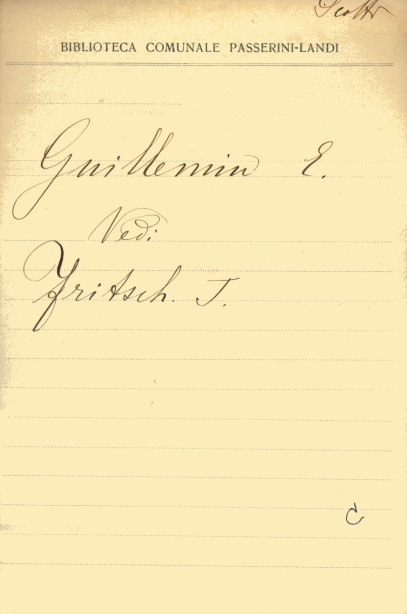 Scotti
BIBLIOTECA COMUNALE PASSERINI-LANDI
Guillemin E.
Vedi:
Fritsch. J.
C